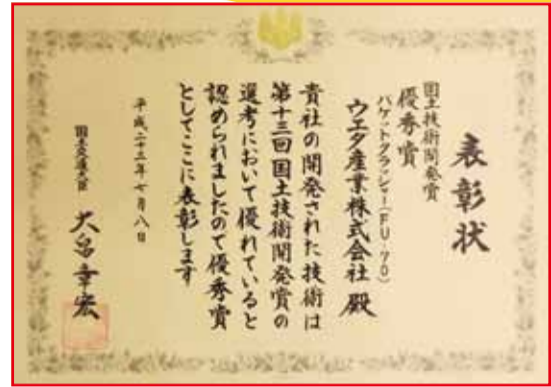 表彰状
国土技術開発賞
優秀賞
バケットクラッシャー(FU-70)
ウエダ産業株式会社 殿
貴社の開発された技術は
第十三回国土技術開発賞の
選考において優れていると
認められましたので優秀賞
としてここに表彰します
平成二十三年七月八日
国土交通大臣 大畠章宏